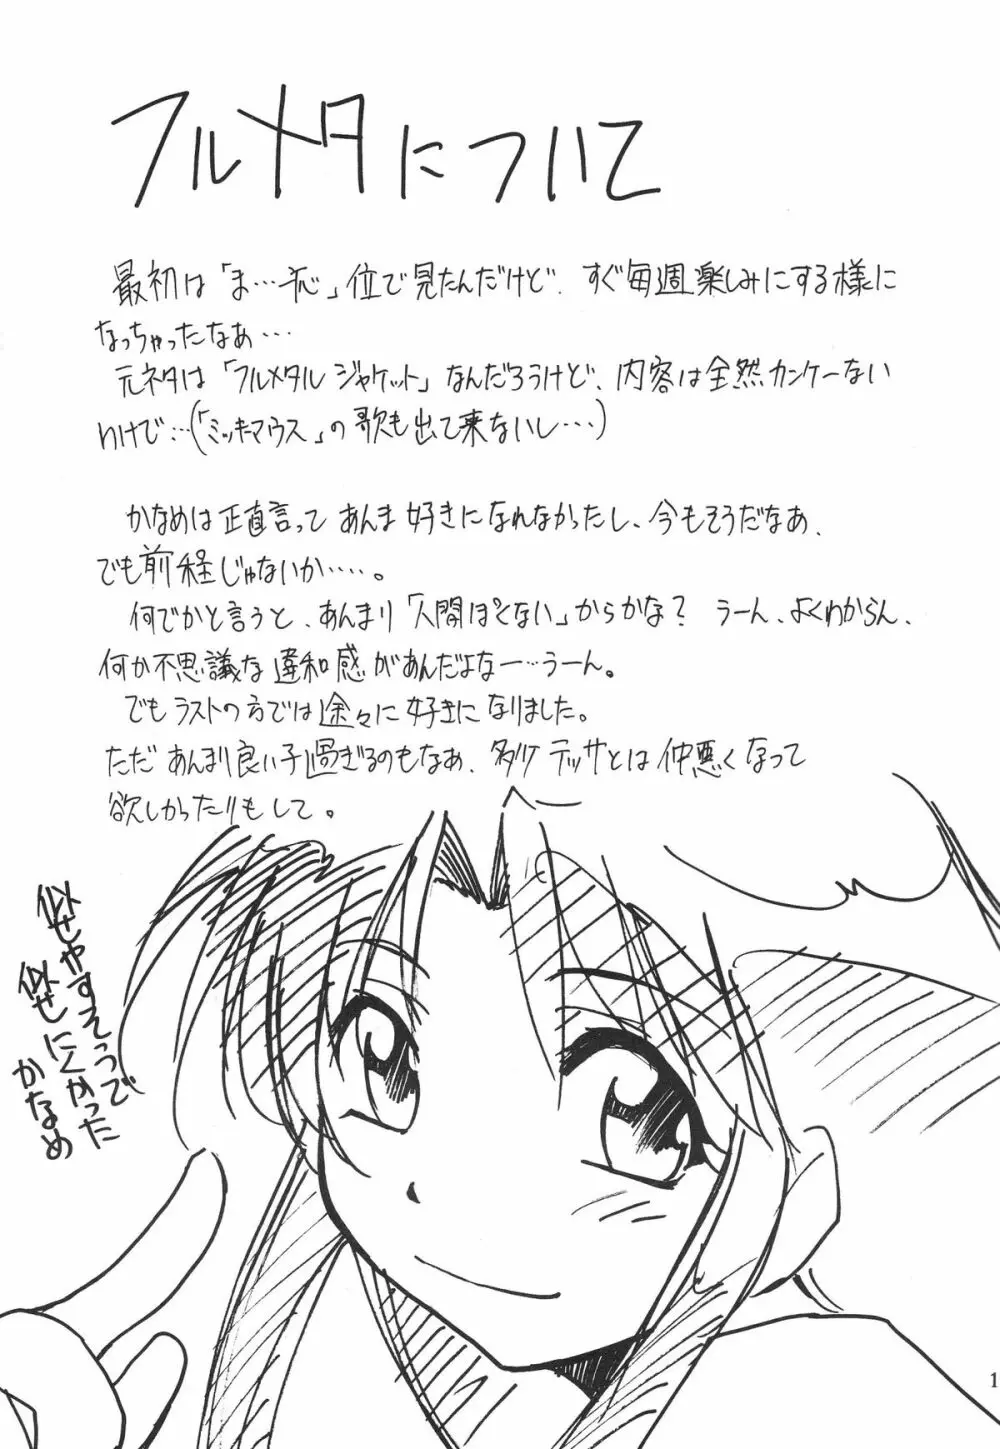 フルメタについて
最初は「ま…一応」位で見たんだけど、すぐ毎週楽しみにする様に
なっちゃったなあ…
元ネタは「フルメタルジャケット」なんだろうけど、内容は全然カンケーない
わけで…(「ミッキーマウス」の歌も出て来ないし…)
かなめは正直言ってあんま好きになれなかったし、今もそうだなあ、
でも前程じゃないか……。
何でかと言うと、あんまり「人間ぽくない」からかな? うーん、よくわからん、
何か不思議な違和感があんだよなー…うーん。
でもラストの方では途々に好きになりました。
ただあんまり良い子過ぎるのもなあ、多少テッサとは仲悪くなって
欲しかったりもして。
似せやすそうで
似せにくかった
かなめ
1